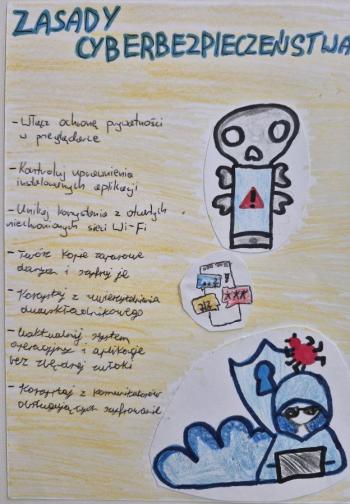 ZASADY
CYBERBEZPIECZEŃSTWA
- Włącz ochronę prywatności
w przeglądarce
- Kontroluj uprawnienia
instalowanych aplikacji
- Unikaj korzystania z otwartych
niechronionych sieci Wi-Fi
- Twórz kopie zapasowe
danych i szyfruj je
- Korzystaj z uwierzytelnienia
dwuskładnikowego
- Uaktualniaj system
operacyjny i aplikacje
bez zbędnej zwłoki
- Korzystaj z komunikatorów
obsługujących szyfrowanie
***